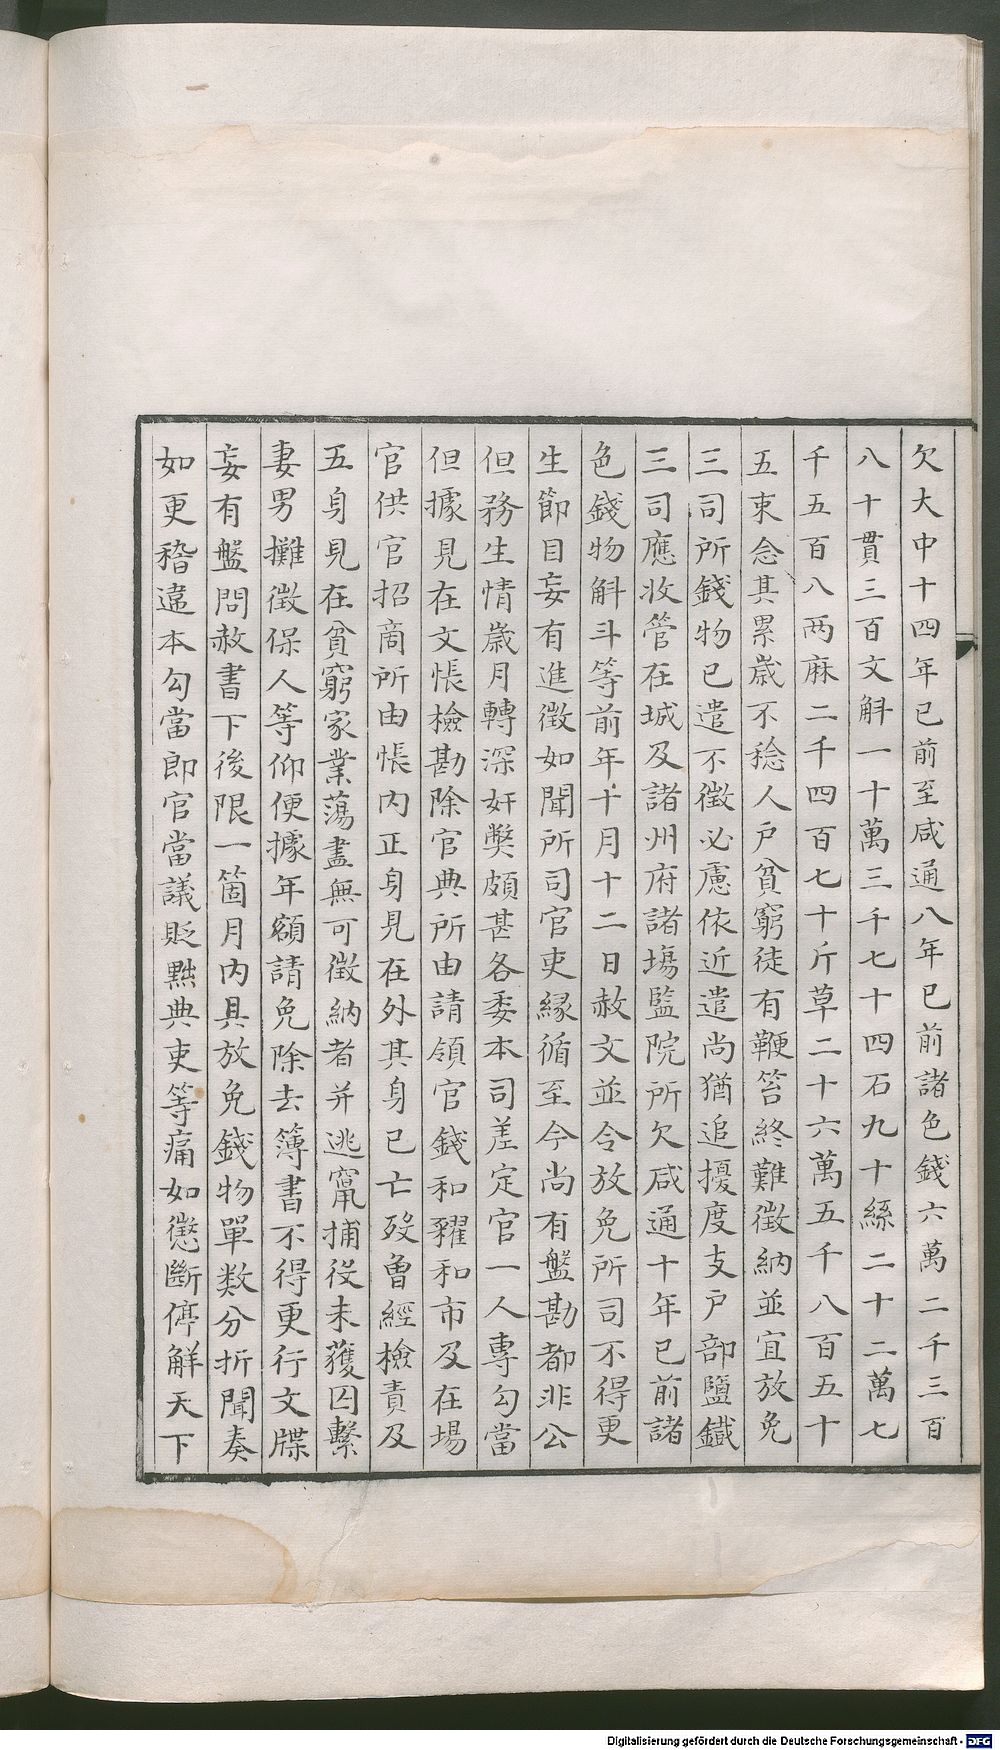 欠大中十四年已前至咸通八年已前諸色錢六萬二千三百
八十貫三百文斛一十萬三千七十四石九十絲二十二萬七
千五百八两麻二千四百七十斤草二十六萬五千八百五十
五束念其累歲不稔人戶貧窮徒有鞭笞終難徵納並宜放免
三司所錢物已遣不徵必慮依近遣尚猶追擾度支戶部鹽鐵
三司應收管在城及諸州府諸場監院所欠咸通十年已前諸
色錢物斛斗等前年十月十二日赦文並令放免所司不得更
生節目妄有進徵如聞所司官吏緣循至今尚有盤勘都非公
但務生情歲月轉深奸獘頗甚各委本司差定官一人專勾當
但據見在文帳檢勘除官典所由請領官錢和糴和市及在場
官供官招商所由帳內正身見在外其身已亡歿曾經檢責及
五身見在貧窮家業蕩盡無可徵納者并逃竄捕役未獲囚繫
妻男攤徵保人等仰便據年額請免除去簿書不得更行文牒
妄有盤問赦書下後限一箇月內具放免錢物單数分折聞奏
如更稽違本勾當即官當議貶黜典吏等痛如懲斷停解天下
Digitalisierung gefördert durch die Deutsche Forschungsgemeinschaft - DFG